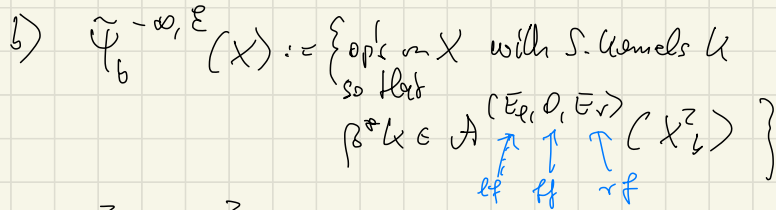 b) Ψ̃_b^{-∞, ℰ}(X) := { op's on X with S. kernels K
so that
β*K ∈ 𝒜^{(E_ℓ, 0, E_r)}(X²_b) }
lf ff rf